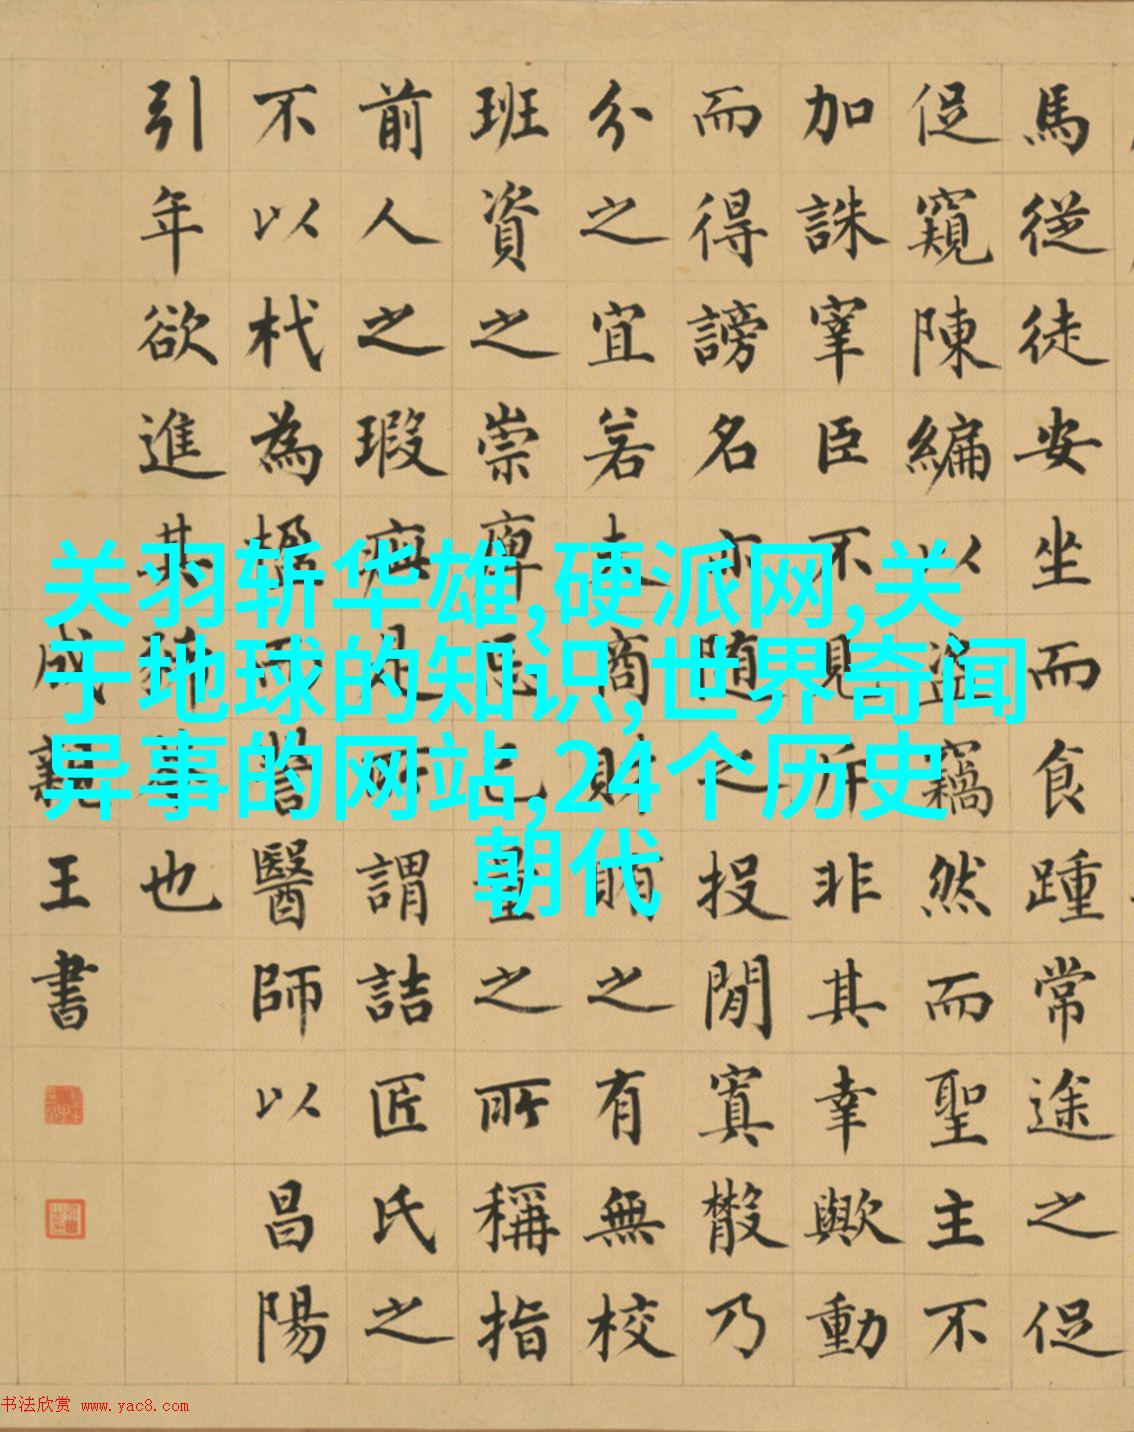 馬從徒安坐而食踵常途之促
促窺陳編以盜竊然而聖主不
加誅宰臣不見斥非其幸歟動
而得謗名亦隨之投閒寘散乃
分之宜若夫商財賄之有無校
班資之崇庳忘己量之所稱指
前人之瑕疵是所謂詰匠氏之
不以杙為楹而訾醫師以昌陽
引年欲進其豨苓也
成親王書
关羽斩华雄,硬派网,关
于地球的知识,世界奇闻
异事的网站,24个历史
朝代
书法欣赏 www.yac8.com